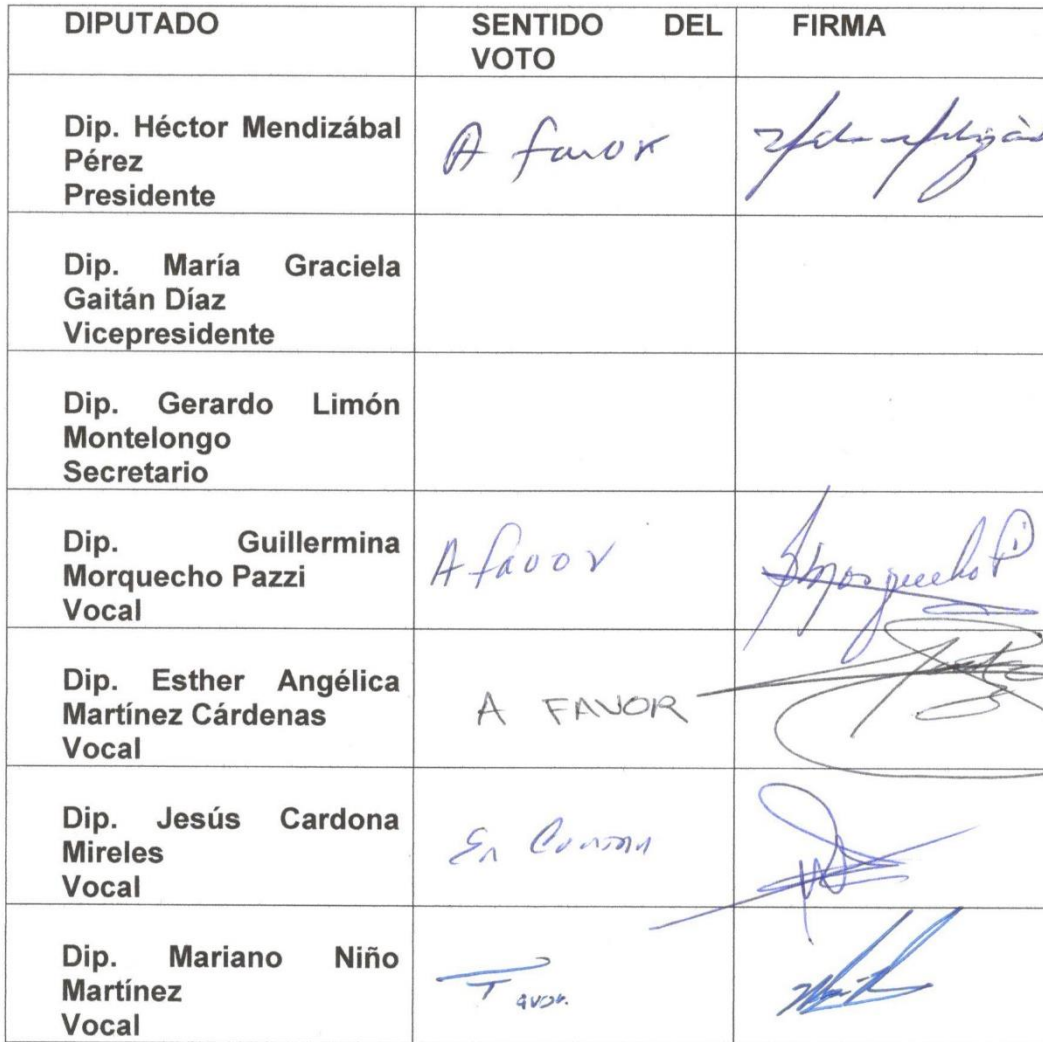 DIPUTADO
SENTIDO DEL
VOTO
FIRMA
Dip. Héctor Mendizábal
Pérez
Presidente
A favor
Dip. María Graciela
Gaitán Díaz
Vicepresidente
Dip. Gerardo Limón
Montelongo
Secretario
Dip. Guillermina
Morquecho Pazzi
Vocal
A favor
Morquecho P
Dip. Esther Angélica
Martínez Cárdenas
Vocal
A FAVOR
Dip. Jesús Cardona
Mireles
Vocal
En
Dip. Mariano Niño
Martínez
Vocal
Favor.